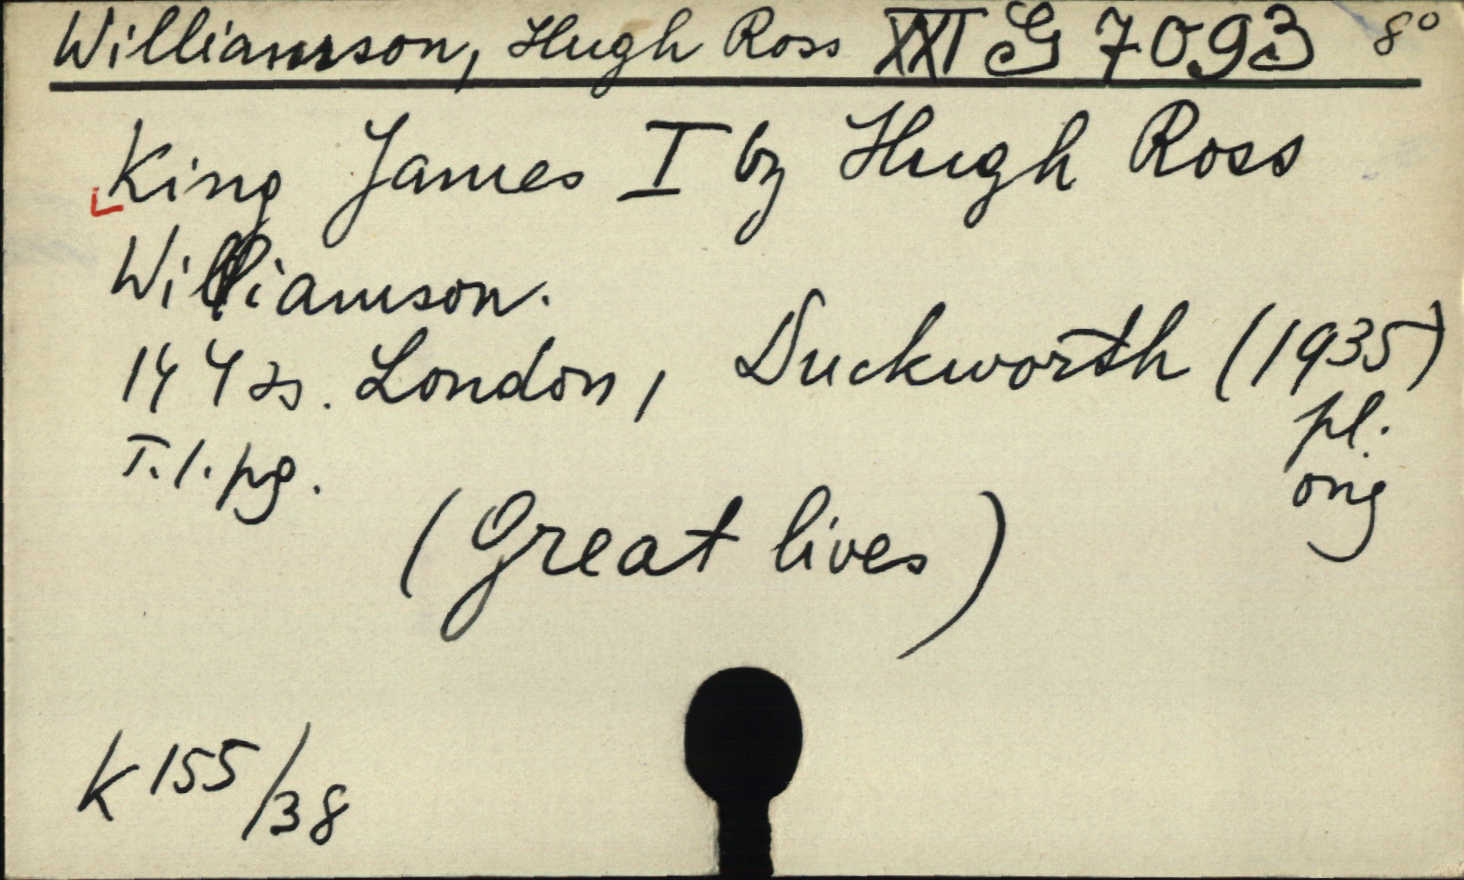 Williamson, Hugh Ross XXI G 7093 8°
King James I by Hugh Ross
Williamson.
144 s. London, Duckworth (1935)
T. l. pg. pl.
orig
(Great lives)
K 155/38